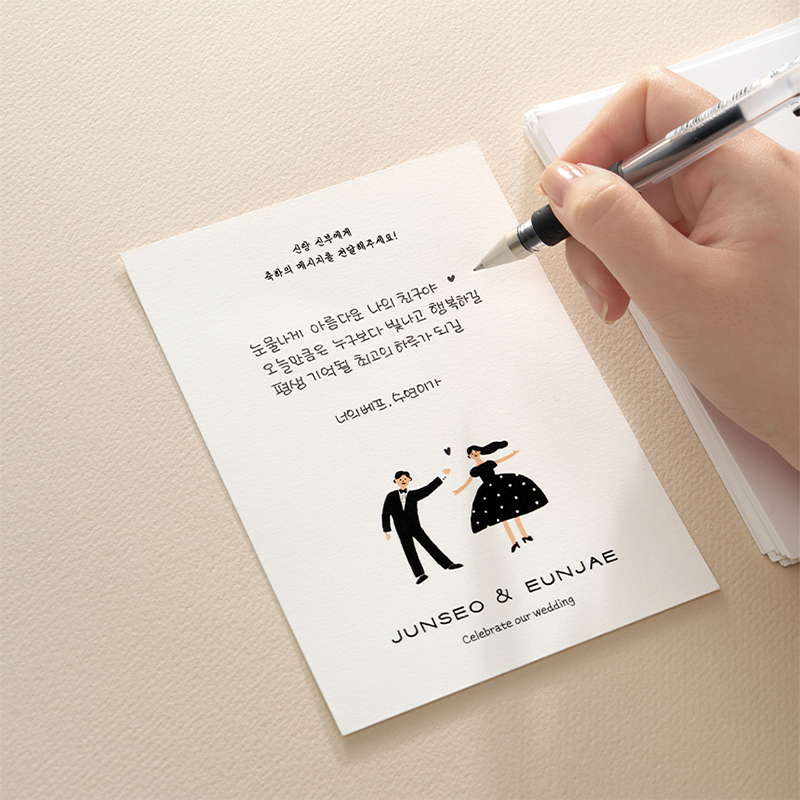 신랑 신부에게
축하의 메시지를 전달해주세요!
눈물나게 아름다운 나의 친구야 ♥
오늘만큼은 누구보다 빛나고 행복하길
평생 기억될 최고의 하루가 되길
너의 베프, 수연이가
JUNSEO & EUNJAE
Celebrate our wedding